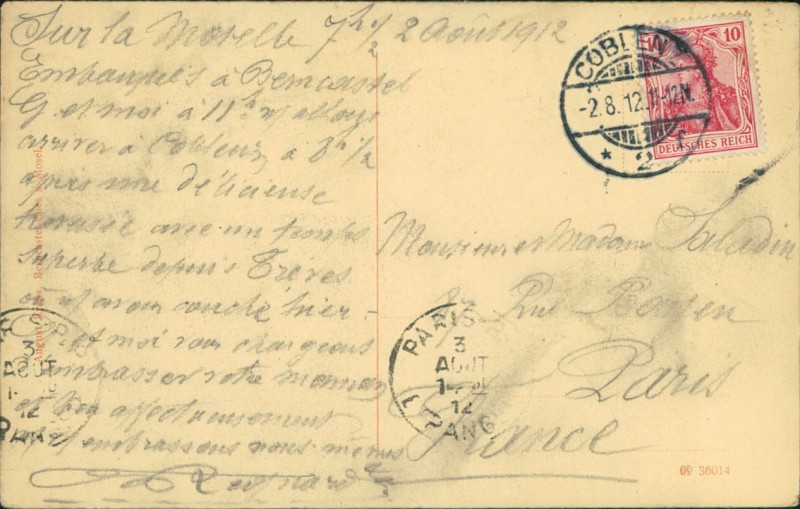 Sur la Moselle 7h 1/2 2 Août 1912
Embarqués à Berncastel
G et moi à 11h allons
arriver à Coblenz à 8h 1/2
après une délicieuse
avec un temps
superbe depuis Trèves
où avons couché hier
et moi vous chargeons
d'embrasser votre maman
et bien affectueusement
et embrassons vous mêmes
COBLENZ
-2.8.12.11-12N.
* 2 c
10
DEUTSCHES REICH
Monsieur et Madame Saladin
Rue
Paris
France
PARIS
3
AOUT
12
ANG
3
AOUT
12
09 36014